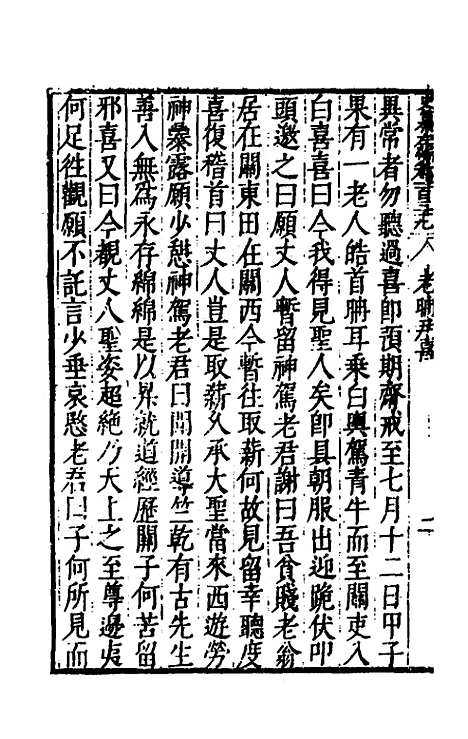 異常者勿聽過喜即預期齋戒至七月十二日甲子
果有一老人皓首聃耳乘白輿駕青牛而至關吏入
白喜喜曰今我得見聖人矣即具朝服出迎跪伏叩
頭邀之曰願丈人暫留神駕老君謝曰吾貧賤老翁
居在關東田在關西今暫往取薪何故見留幸聽度
喜復稽首曰丈人豈是取薪久承大聖當來西遊勞
神暴露願少憩神駕老君曰聞開導竺乾有古先生
善入無為永存綿綿是以昇就道經歷關子何苦留
邪喜又曰今觀丈人聖姿超絕乃天上之至尊邊夷
何足往觀願不託言少垂哀愍老君曰子何所見而
老聃尹喜
二